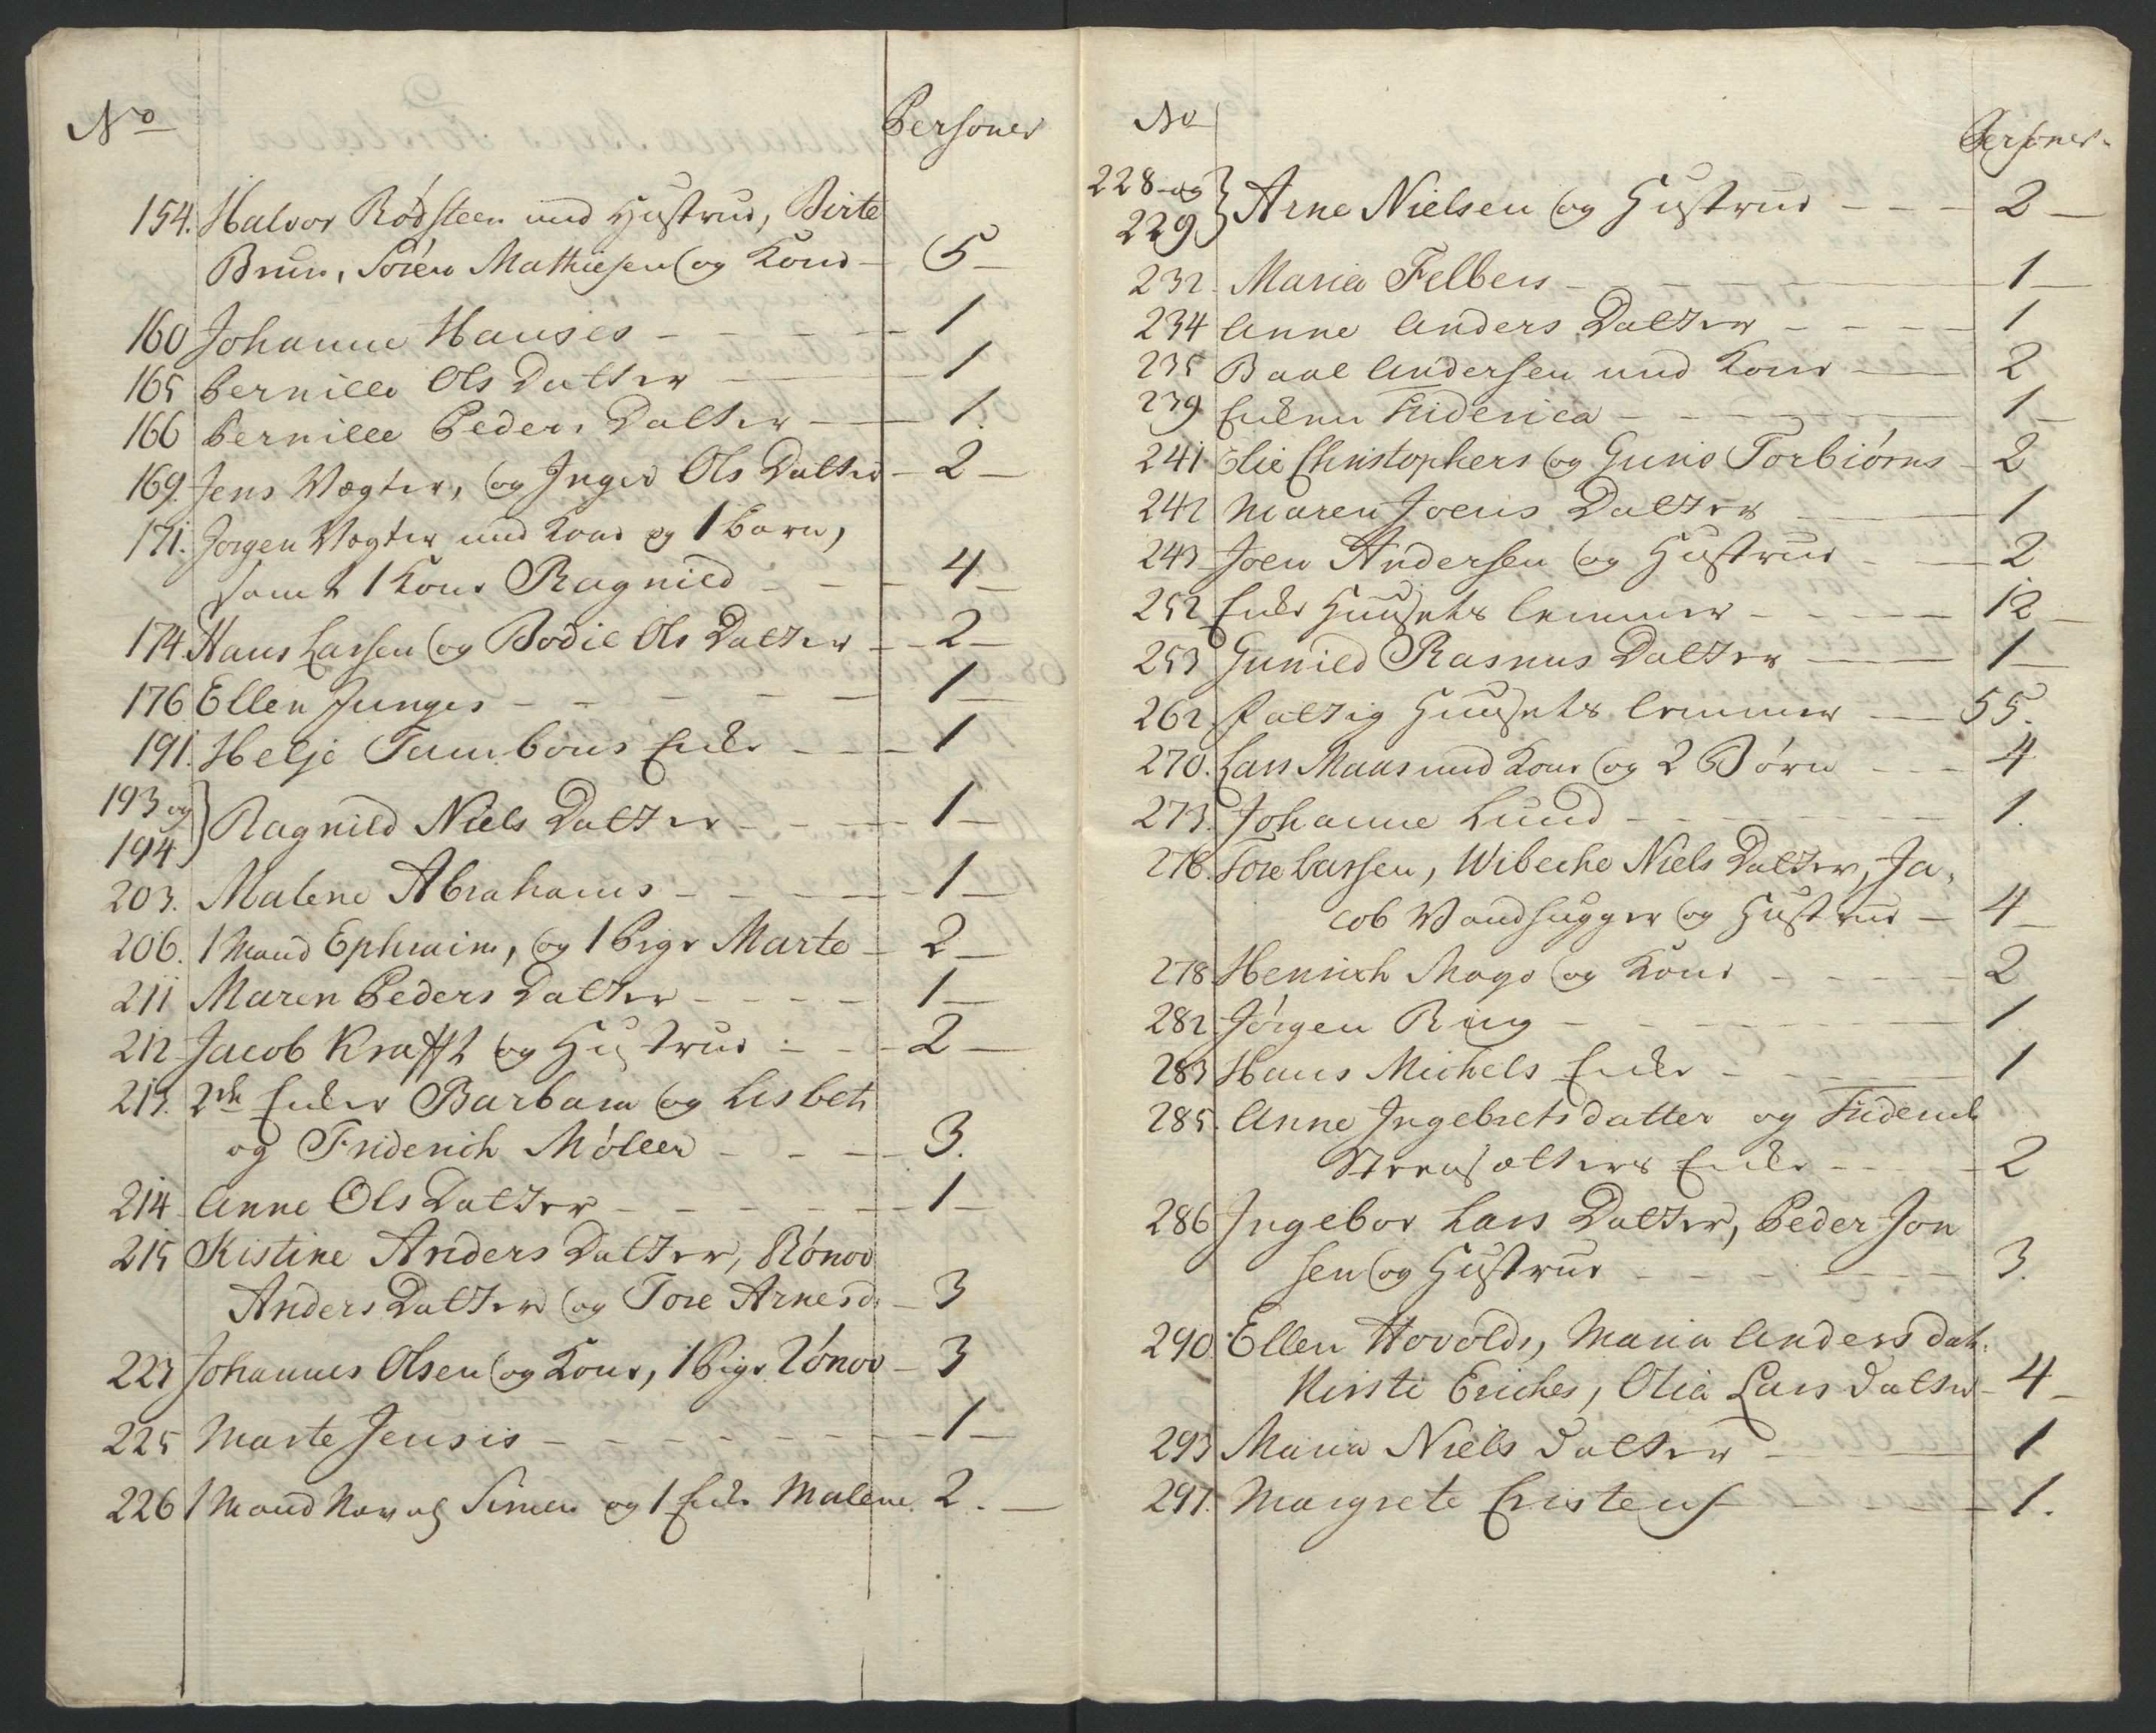 No Personer
154. Halvor Rødsteen med Hustrue, Birte
Brun, Sören Mathiesen og Kone - 5 -
160 Johanne Hanses - - - - - 1
165 Pernille Ols Datter - 1
166 Pernille Peders Datter - 1.
169. Jens Vægter, og Inger Ols Datter - 2 -
171. Jørgen Vægter med Kone og 1 Barn,
samt 1 Kone Ragnild - - - 4 -
174. Hans Larsen og Bodil Ols Datter - - 2 -
176 Ellen Junges - - - - - 1 -
191. Helje Tambours Enke - - - 1
193 og
194 } Ragnild Niels Datter - - - - 1 -
203. Malene Abrahams - - - - 1 -
206. 1 Mand Ephraim, og 1 Pige Marte - 2 -
211 Maren Peders Datter - - - - 1 -
212 Jacob Krafft og Hustrue - - - 2 -
213. 2de Enker Barbara og Lisbet
og Friderich Møller - - - - 3.
214 Anne Ols Datter - - - - - - 1 -
215 Kistine Anders Datter, Rønov
Anders Datter og Tore Arnesd. - 3
223 Johannes Olsen og Kone, 1 Pige Rønov - 3
225 Marte Jensis - - - - - - - 1 -
226 1 Mand Simen og 1 Enke Malene. 2. -
No Personer.
228 og
229 } Arne Nielsen og Hustrue - - - 2 -
232 Maria Felbers - - - - - 1 -
234 Anne Anders Datter - - - - 1
235 Paal Andersen med Kone - - 2
239 Enken Friderica - - - - - 1 -
241 Elie Christophers og Guro Torbiørns - 2
242 Maren Joens Datter - 1
243 Joen Andersen og Hustrue - - 2
252 Enke Huusets Lemmer - - - - - 12 -
253 Gunild Rasmus Datter - - 1 -
262. Fattig Huusets Lemmer - - 55.
270. Lars Maas med Kone og 2 Børn - - - 4
273. Johanne Lund - - - - - - - 1.
276. Tore Larsen, Wibeche Niels Datter, Ja-
cob Vandsugger og Hustrue - 4 -
278 Henrich Mago og Kone - - - - - 2
282. Jørgen Ring - - - - - - - 1
283 Hans Michels Enke - - - - - 1
285. Anne Ingebretsdatter og Friderich
Enke - - - - 2
286 Ingebor Lars Datter, Peder Jon
sen og Hustrue - - - - - - - 3.
290. Ellen Hovolds, Maria Anders dat.
Kirsti Eriches, Olia Lars datter - 4 -
293 Maria Niels datter - 1
297. Margrete Cristens - - - - - 1.